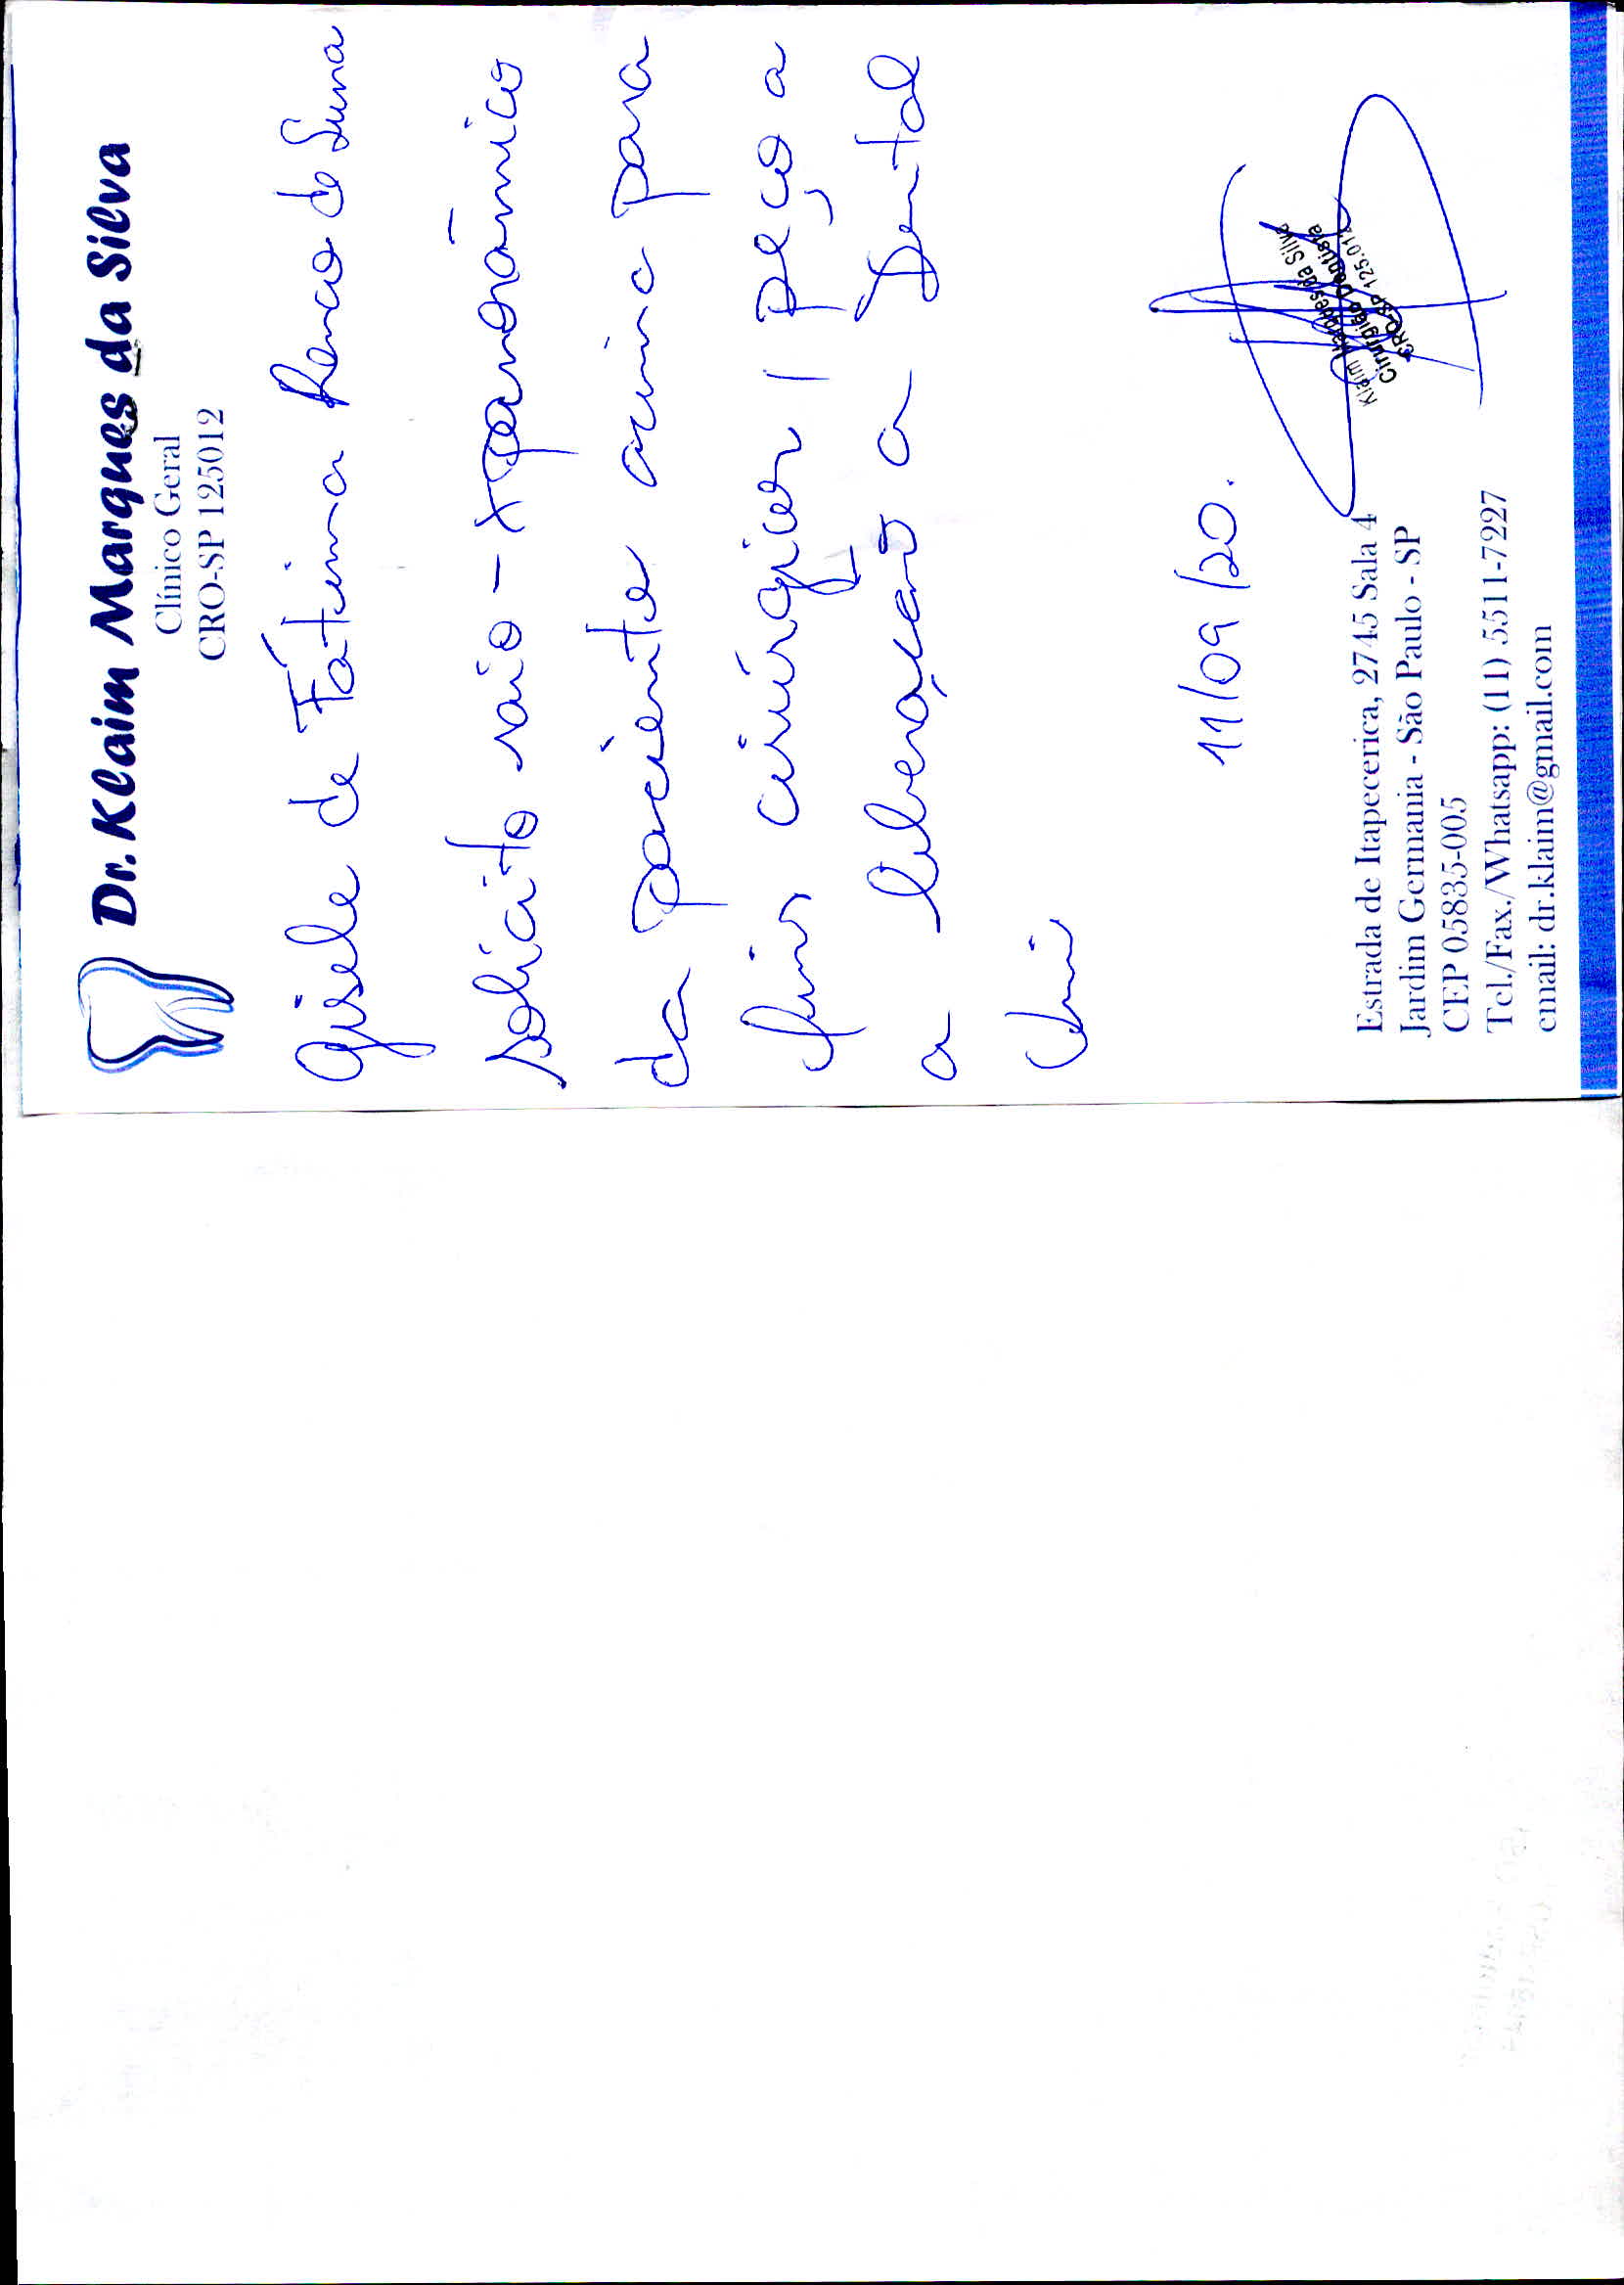 Dr. Klaim Marques da Silva
Clínico Geral
CRO-SP 125012
Gisele de Fátima de Luna
solicito raio-x panorâmico
da paciente acima para
fins cirúrgicos / peço a
a liberação a Dental
Uni
11/09/20.
Klaim Marques da Silva
Cirurgião Dentista
CRO-SP 125.012
Estrada de Itapecerica, 2745 Sala 4
Jardim Germania - São Paulo - SP
CEP 05835-005
Tel./Fax./Whatsapp: (11) 5511-7227
email: dr.klaim@gmail.com